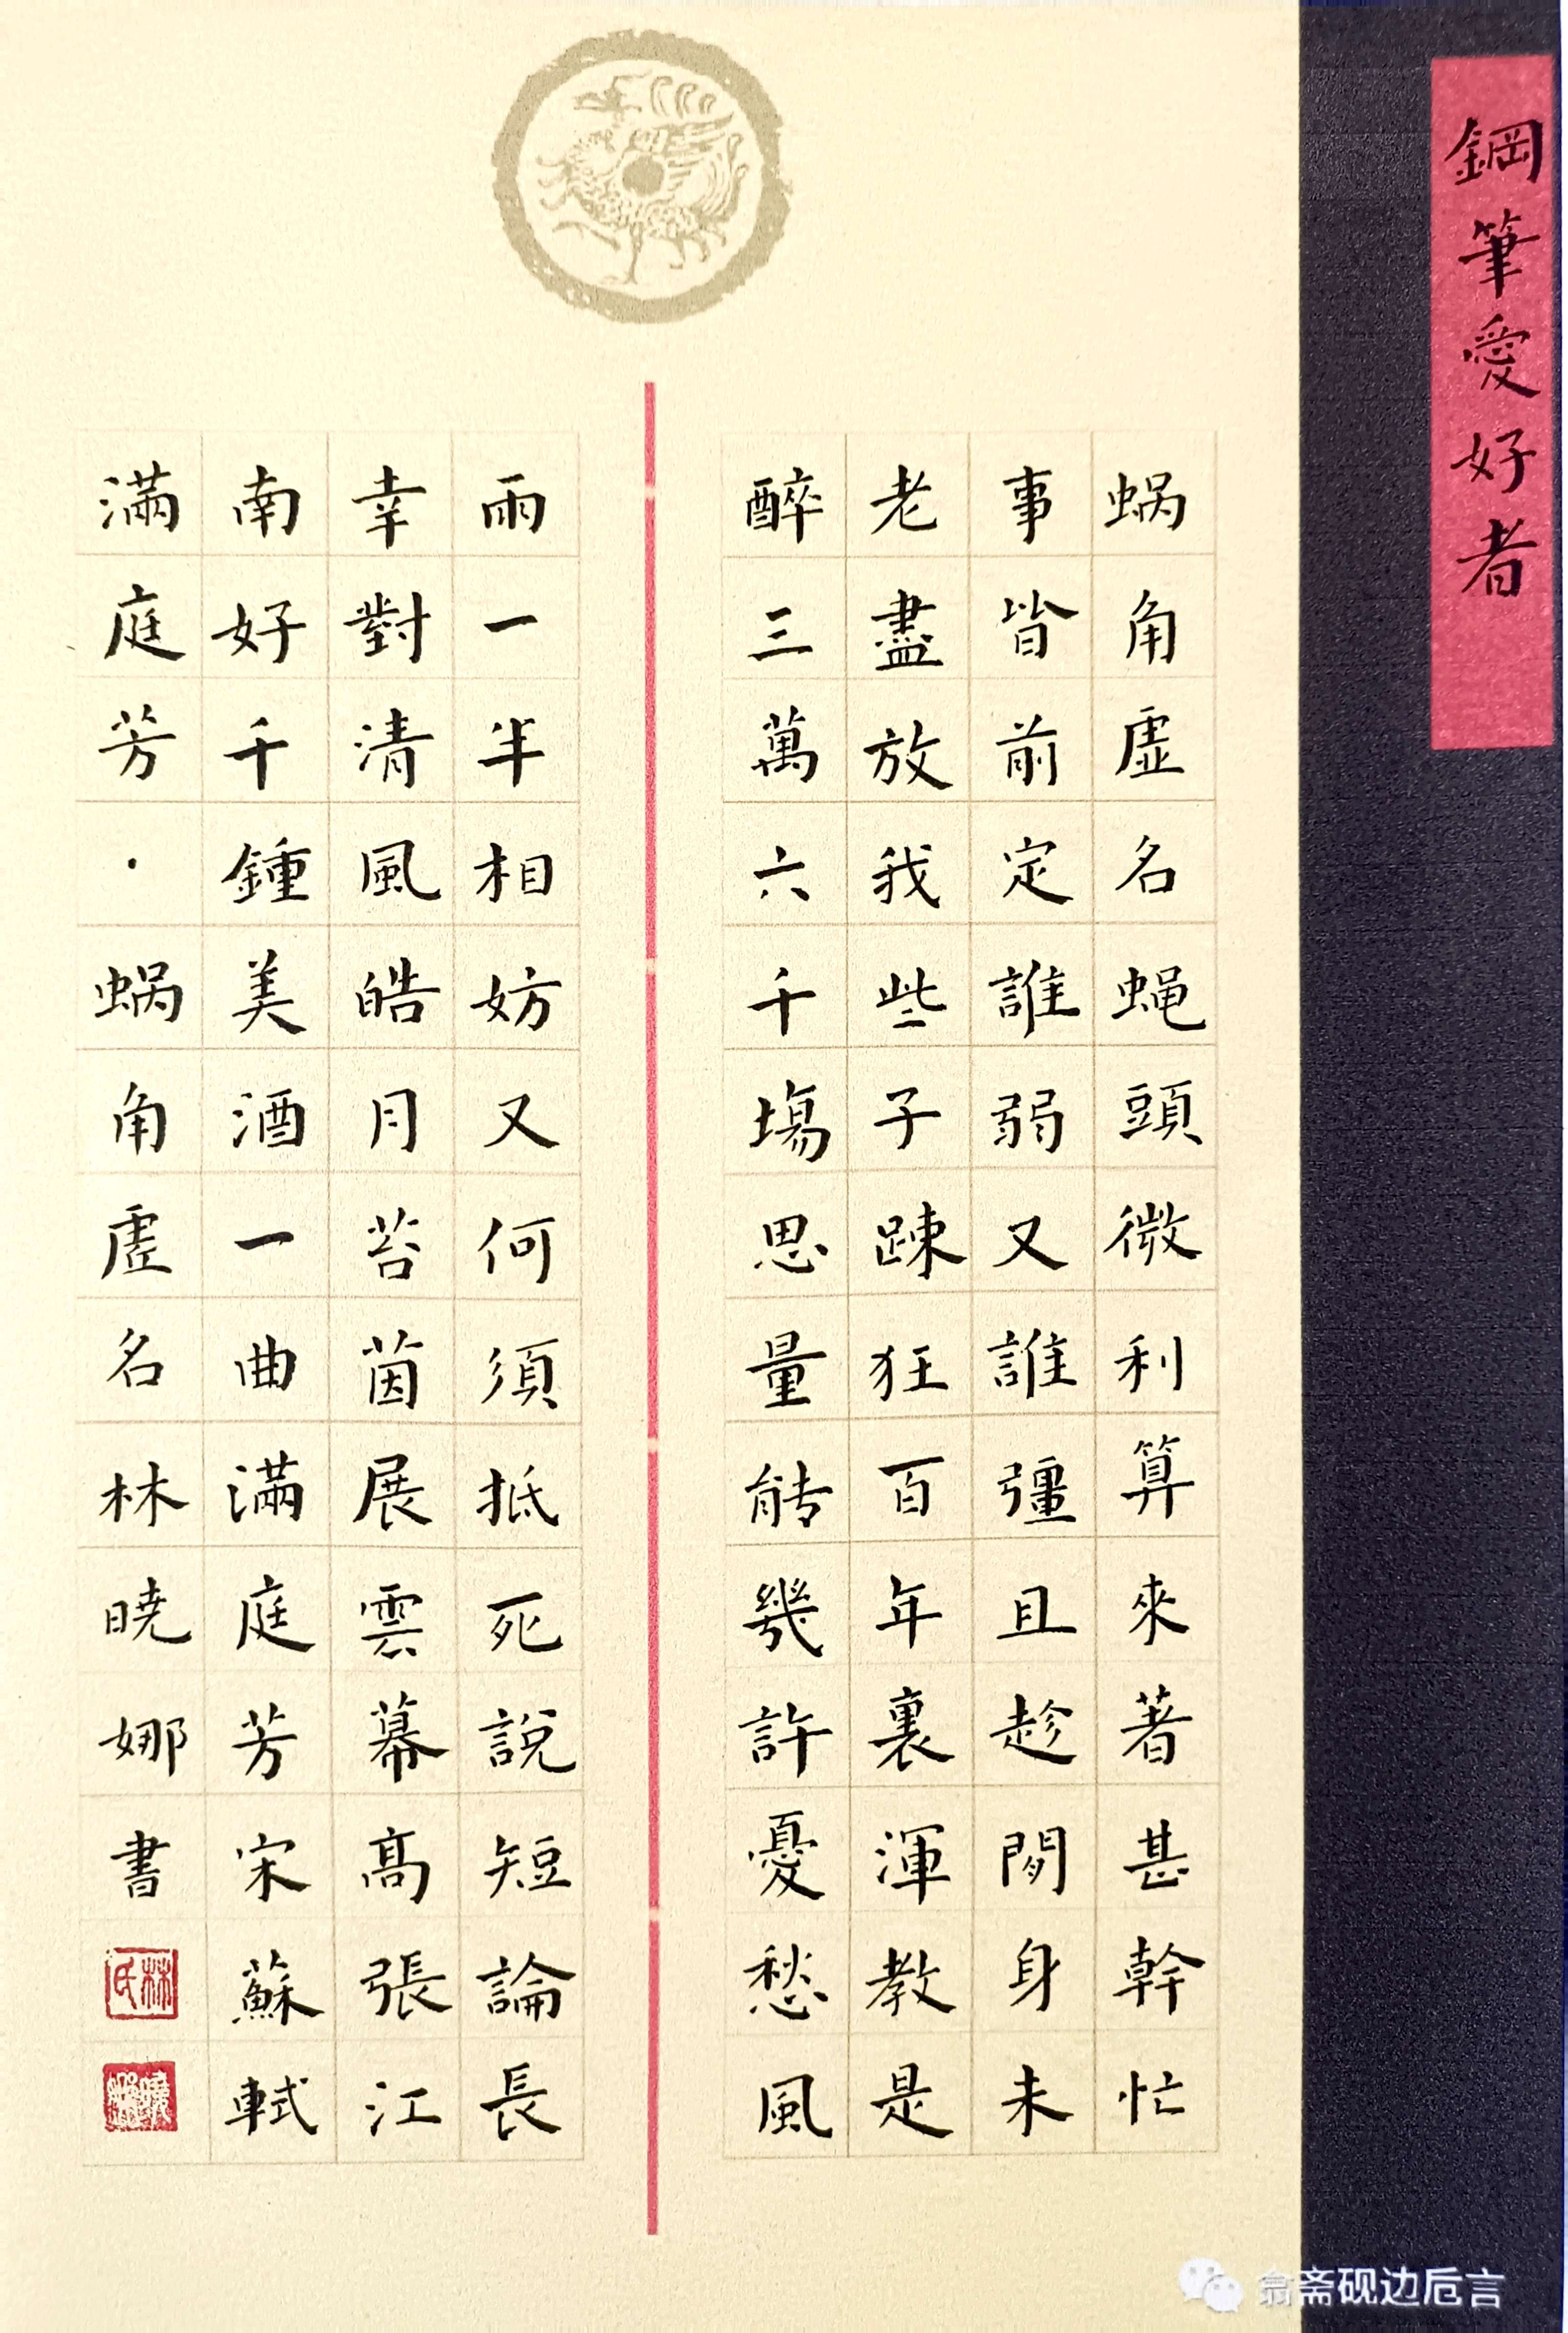 鋼筆愛好者
蜗角虛名蝇頭微利算來著甚幹忙
事皆前定誰弱又誰彊且趁閒身未
老盡放我些子踈狂百年裏渾教是
醉三萬六千場思量能幾許憂愁風
雨一半相妨又何須抵死說短論長
幸對清風皓月苔茵展雲幕高張江
南好千鍾美酒一曲滿庭芳宋蘇軾
滿庭芳·蜗角虛名林曉娜書
林氏
翕斋砚边卮言